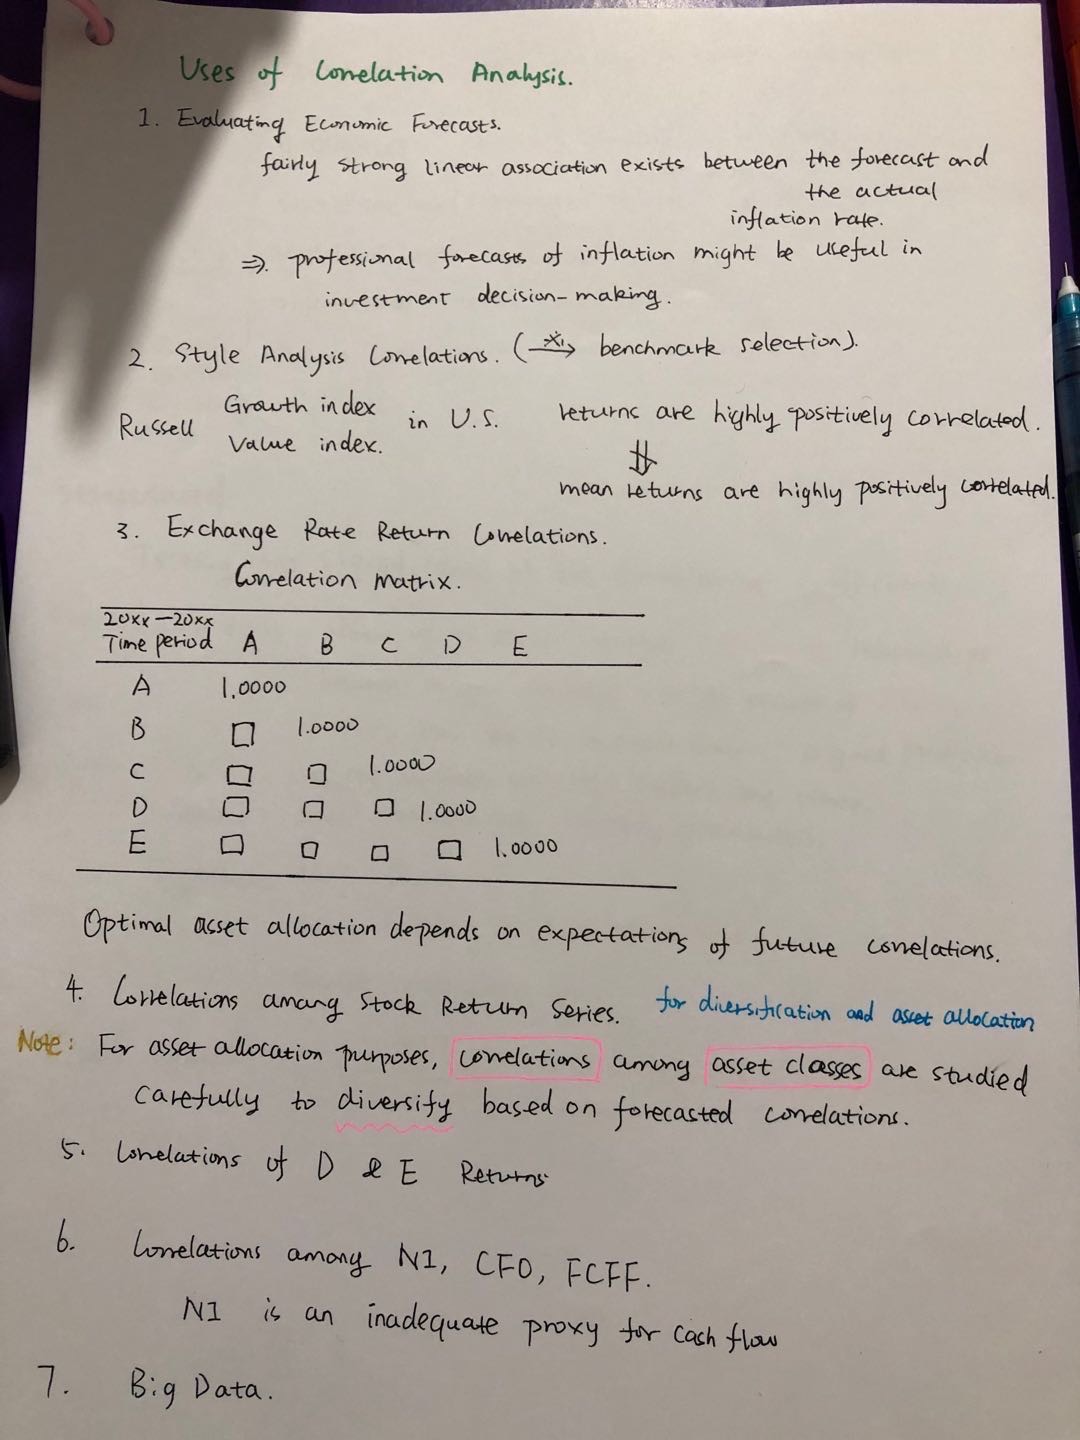 Uses of Correlation Analysis.
1. Evaluating Economic Forecasts.
fairly strong linear association exists between the forecast and
the actual
inflation rate.
⇒. professional forecasts of inflation might be useful in
investment decision-making.
2. Style Analysis Correlations. ( → benchmark selection).
Russell Growth index in U.S. returns are highly positively correlated.
Value index. ⇓
mean returns are highly positively correlated.
3. Exchange Rate Return Correlations.
Correlation matrix.
20xx-20xx
Time period A B C D E
A 1.0000
B □ 1.0000
C □ □ 1.0000
D □ □ □ 1.0000
E □ □ □ □ 1.0000
Optimal asset allocation depends on expectations of future correlations.
4. Correlations among Stock Return Series. for diversification and asset allocation
Note: For asset allocation purposes, correlations among asset classes are studied
carefully to diversify based on forecasted correlations.
5. Correlations of D & E Returns
6. Correlations among NI, CFO, FCFF.
NI is an inadequate proxy for cash flow
7. Big Data.